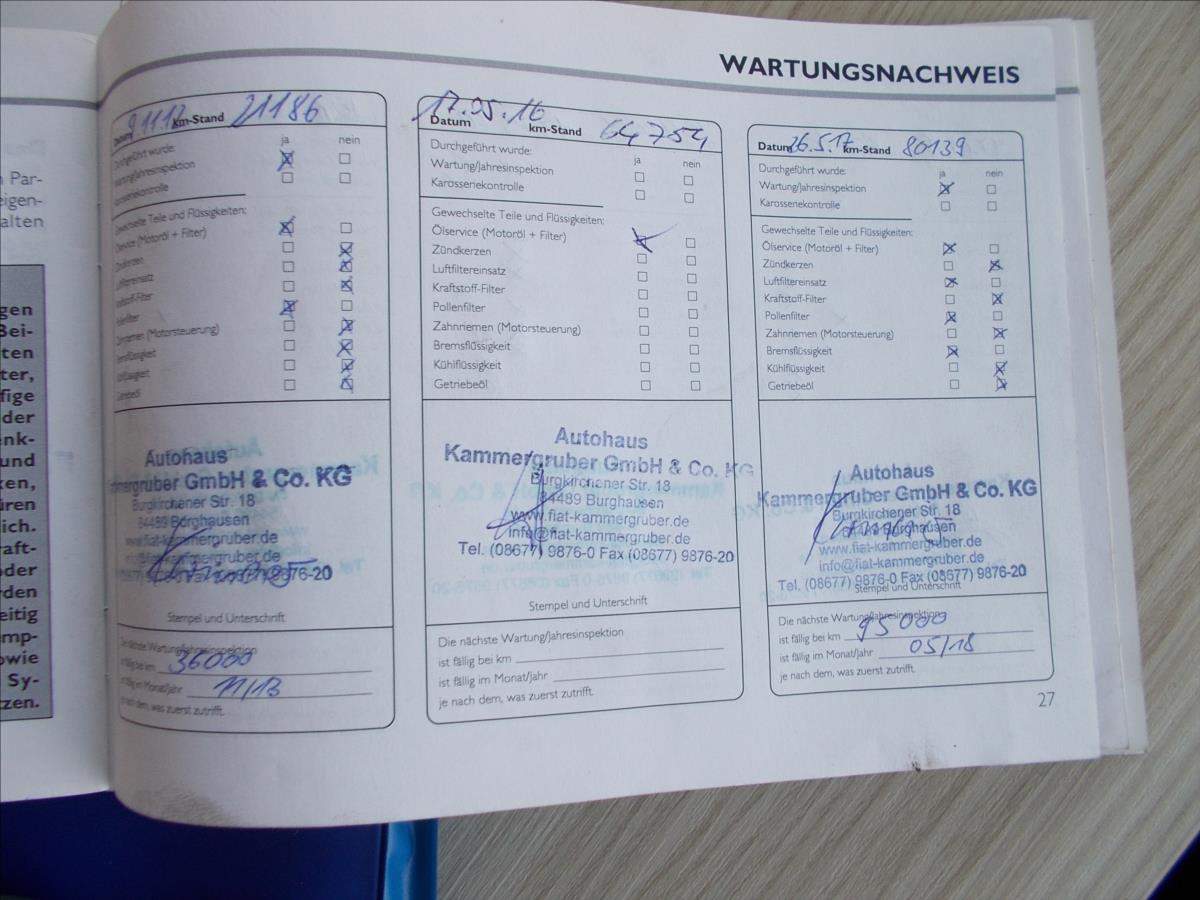 WARTUNGSNACHWEIS
Par-
eigen-
alten
gen
Bei-
ten
ter,
fige
der
nk-
und
ken,
üren
lich.
raft-
oder
rden
eitig
mp-
owie
Sy-
zen.
Datum km-Stand 21186
ja nein
Durchgeführt wurde:
Wartung/Jahresinspektion
Karosseriekontrolle
Gewechselte Teile und Flüssigkeiten:
Ölservice (Motoröl + Filter)
Zündkerzen
Luftfiltereinsatz
Kraftstoff-Filter
Pollenfilter
Zahnriemen (Motorsteuerung)
Bremsflüssigkeit
Kühlflüssigkeit
Getriebeöl
Autohaus
Kammergruber GmbH & Co. KG
Burgkirchener Str. 18
84489 Burghausen
www.fiat-kammergruber.de
info@fiat-kammergruber.de
9876-20
Stempel und Unterschrift
Die nächste Wartung/Jahresinspektion
ist fällig bei km 36000
ist fällig im Monat/Jahr 11/13
je nach dem, was zuerst zutrifft.
Datum 17.05.16 km-Stand 64754
Durchgeführt wurde: ja nein
Wartung/Jahresinspektion
Karosseriekontrolle
Gewechselte Teile und Flüssigkeiten:
Ölservice (Motoröl + Filter)
Zündkerzen
Luftfiltereinsatz
Kraftstoff-Filter
Pollenfilter
Zahnriemen (Motorsteuerung)
Bremsflüssigkeit
Kühlflüssigkeit
Getriebeöl
Autohaus
Kammergruber GmbH & Co. KG
Burgkirchener Str. 18
84489 Burghausen
www.fiat-kammergruber.de
info@fiat-kammergruber.de
Tel. (08677) 9876-0 Fax (08677) 9876-20
Stempel und Unterschrift
Die nächste Wartung/Jahresinspektion
ist fällig bei km
ist fällig im Monat/Jahr
je nach dem, was zuerst zutrifft.
Datum 26.5.17 km-Stand 80139
Durchgeführt wurde: ja nein
Wartung/Jahresinspektion
Karosseriekontrolle
Gewechselte Teile und Flüssigkeiten:
Ölservice (Motoröl + Filter)
Zündkerzen
Luftfiltereinsatz
Kraftstoff-Filter
Pollenfilter
Zahnriemen (Motorsteuerung)
Bremsflüssigkeit
Kühlflüssigkeit
Getriebeöl
Autohaus
Kammergruber GmbH & Co. KG
Burgkirchener Str. 18
84489 Burghausen
www.fiat-kammergruber.de
info@fiat-kammergruber.de
Tel. (08677) 9876-0 Fax (08677) 9876-20
Stempel und Unterschrift
Die nächste Wartung/Jahresinspektion
ist fällig bei km 95000
ist fällig im Monat/Jahr 05/18
je nach dem, was zuerst zutrifft.
27